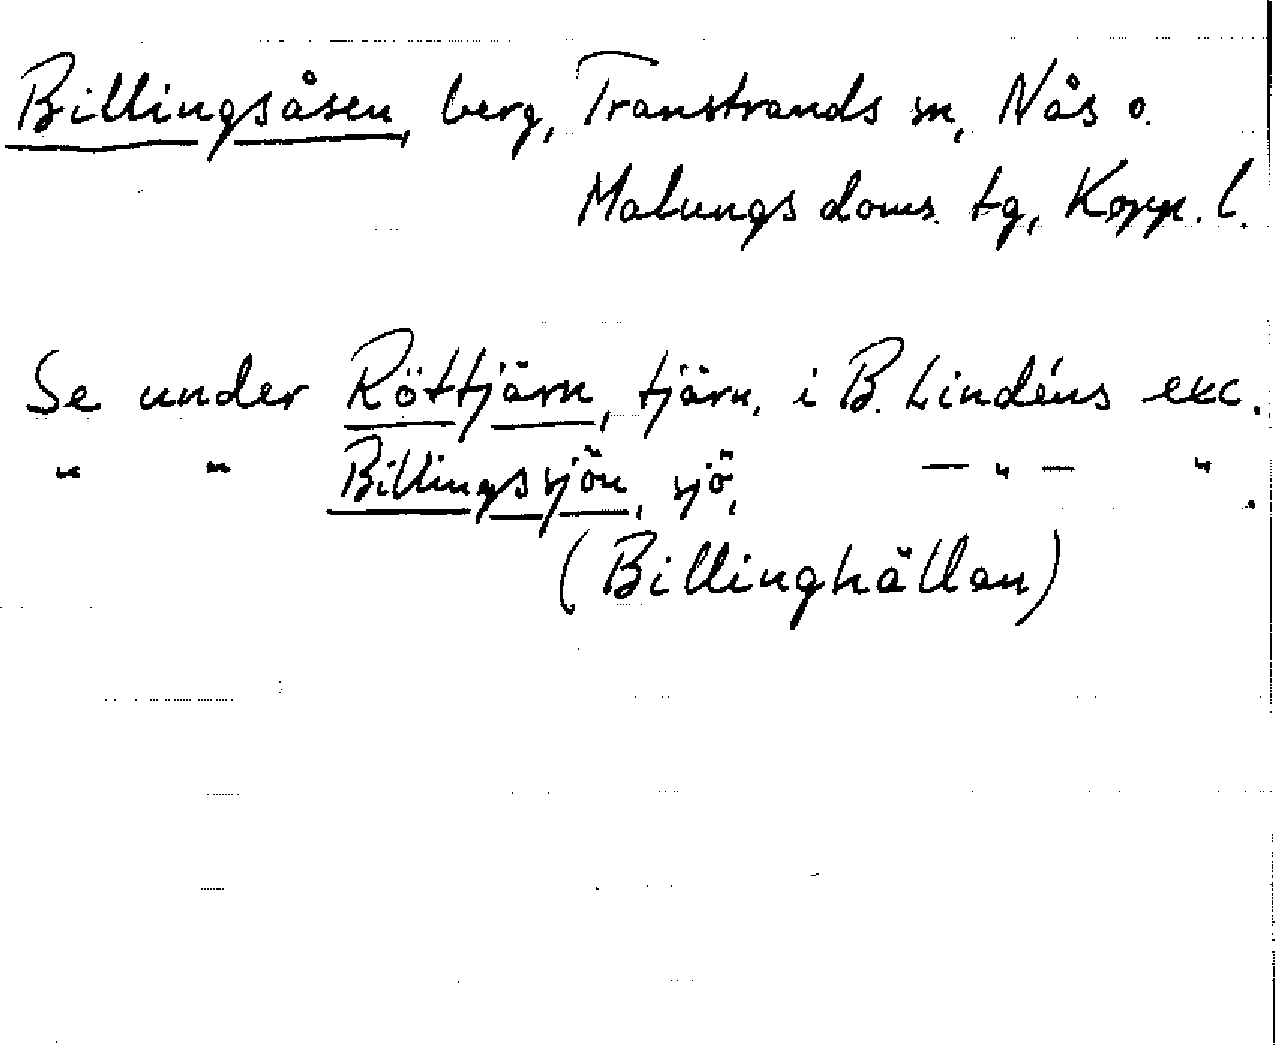 Billingsåsen, berg, Transtrands sn, Nås o.
Malungs doms. tg, Kopp. l.
Se under Röttjärn, tjärn, i B. Lindéns exc.
" " Billingssjön, sjö, — " — ".
(Billinghällan)